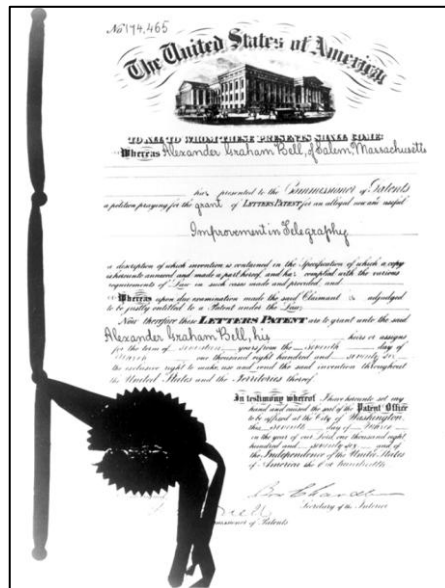 No 174,465
The United States of America
TO ALL TO WHOM THESE PRESENTS SHALL COME:
Whereas Alexander Graham Bell, of Salem, Massachusetts
has presented to the Commissioner of Patents
a petition praying for the grant of LETTERS PATENT for an alleged new and useful
Improvement in Telegraphy
a description of which invention is contained in the Specification of which a copy
is hereunto annexed and made a part hereof, and has complied with the various
requirements of Law in such cases made and provided, and
Whereas upon due examination made the said Claimant is adjudged
to be justly entitled to a Patent under the Law
Now therefore these LETTERS PATENT are to grant unto the said
Alexander Graham Bell, his heirs or assigns
for the term of seventeen years from the seventh day of
March one thousand eight hundred and seventy six
the exclusive right to make use and vend the said invention throughout
the United States and the Territories thereof.
In testimony whereof I have hereunto set my
hand and caused the seal of the Patent Office
to be affixed at the City of Washington
this seventh day of March
in the year of our Lord one thousand eight
hundred and seventy six and of
the Independence of the United States
of America the one hundredth
Secretary of the Interior
Commissioner of Patents